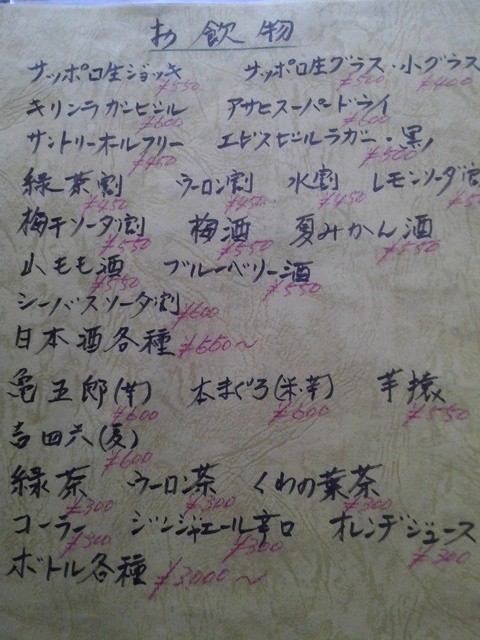 お飲物
サッポロ生ジョッキ ¥550 サッポロ生グラス・小グラス ¥500 ¥400
キリンラガービール ¥600 アサヒスーパードライ ¥600
サントリーオールフリー ¥450 エビスビールラガー・黒 ¥500
緑茶割 ¥450 ウーロン割 ¥450 水割 ¥450 レモンソーダ割
梅干ソーダ割 ¥550 梅酒 ¥550 夏みかん酒 ¥550
山もも酒 ¥550 ブルーベリー酒 ¥550
シーバスソーダ割 ¥600
日本酒各種 ¥650〜
亀五郎(芋) ¥600 本まぐろ(米・芋) ¥600 芋猿 ¥550
吉四六(麦) ¥600
緑茶 ¥300 ウーロン茶 ¥300 くわの葉茶 ¥300
コーラー ¥300 ジンジャエール辛口 ¥300 オレンヂジュース ¥300
ボトル各種 ¥3000〜